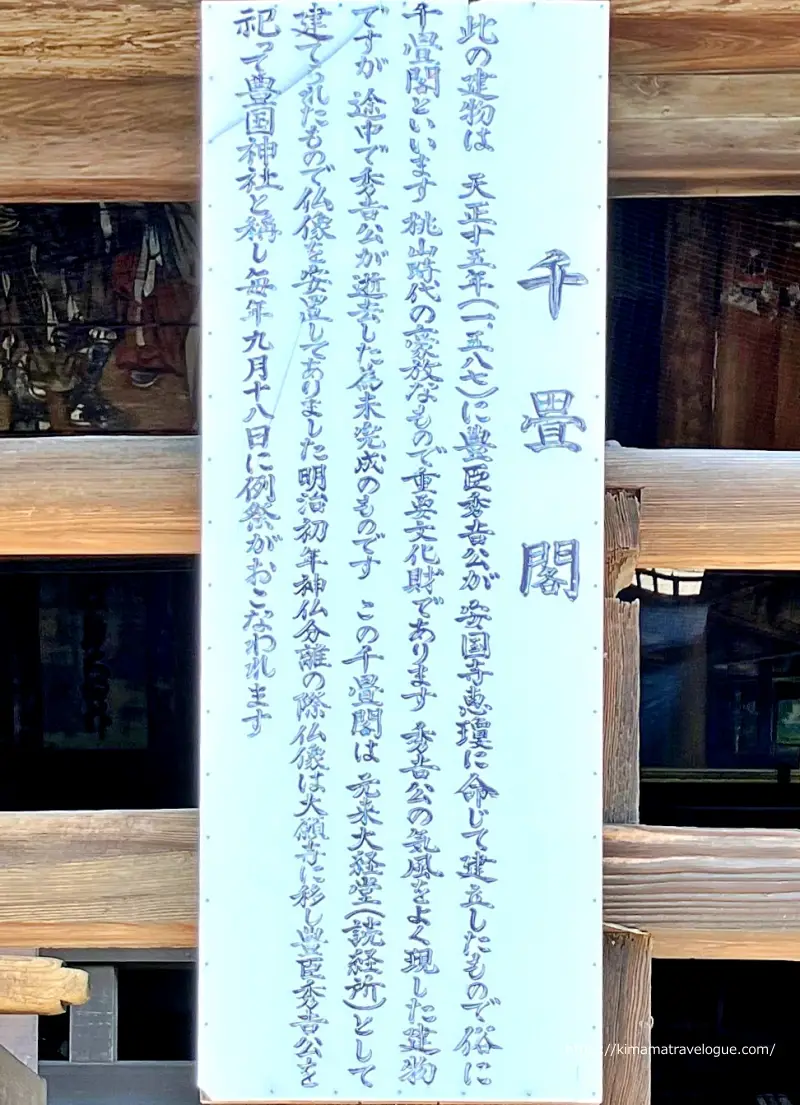 千畳閣
此の建物は 天正十五年(一、五八七)に豊臣秀吉公が 安国寺恵瓊に命じて建立したもので俗に
千畳閣といいます 桃山時代の豪放なもので重要文化財であります 秀吉公の気風をよく現した建物
ですが 途中で秀吉公が逝去した為未完成のものです この千畳閣は 元来大経堂(読経所)として
建てられたもので仏像を安置してありました明治初年神仏分離の際仏像は大願寺に移し豊臣秀吉公を
祀って豊国神社と稱し毎年九月十八日に例祭がおこなわれます
https://kimamatravelogue.com/